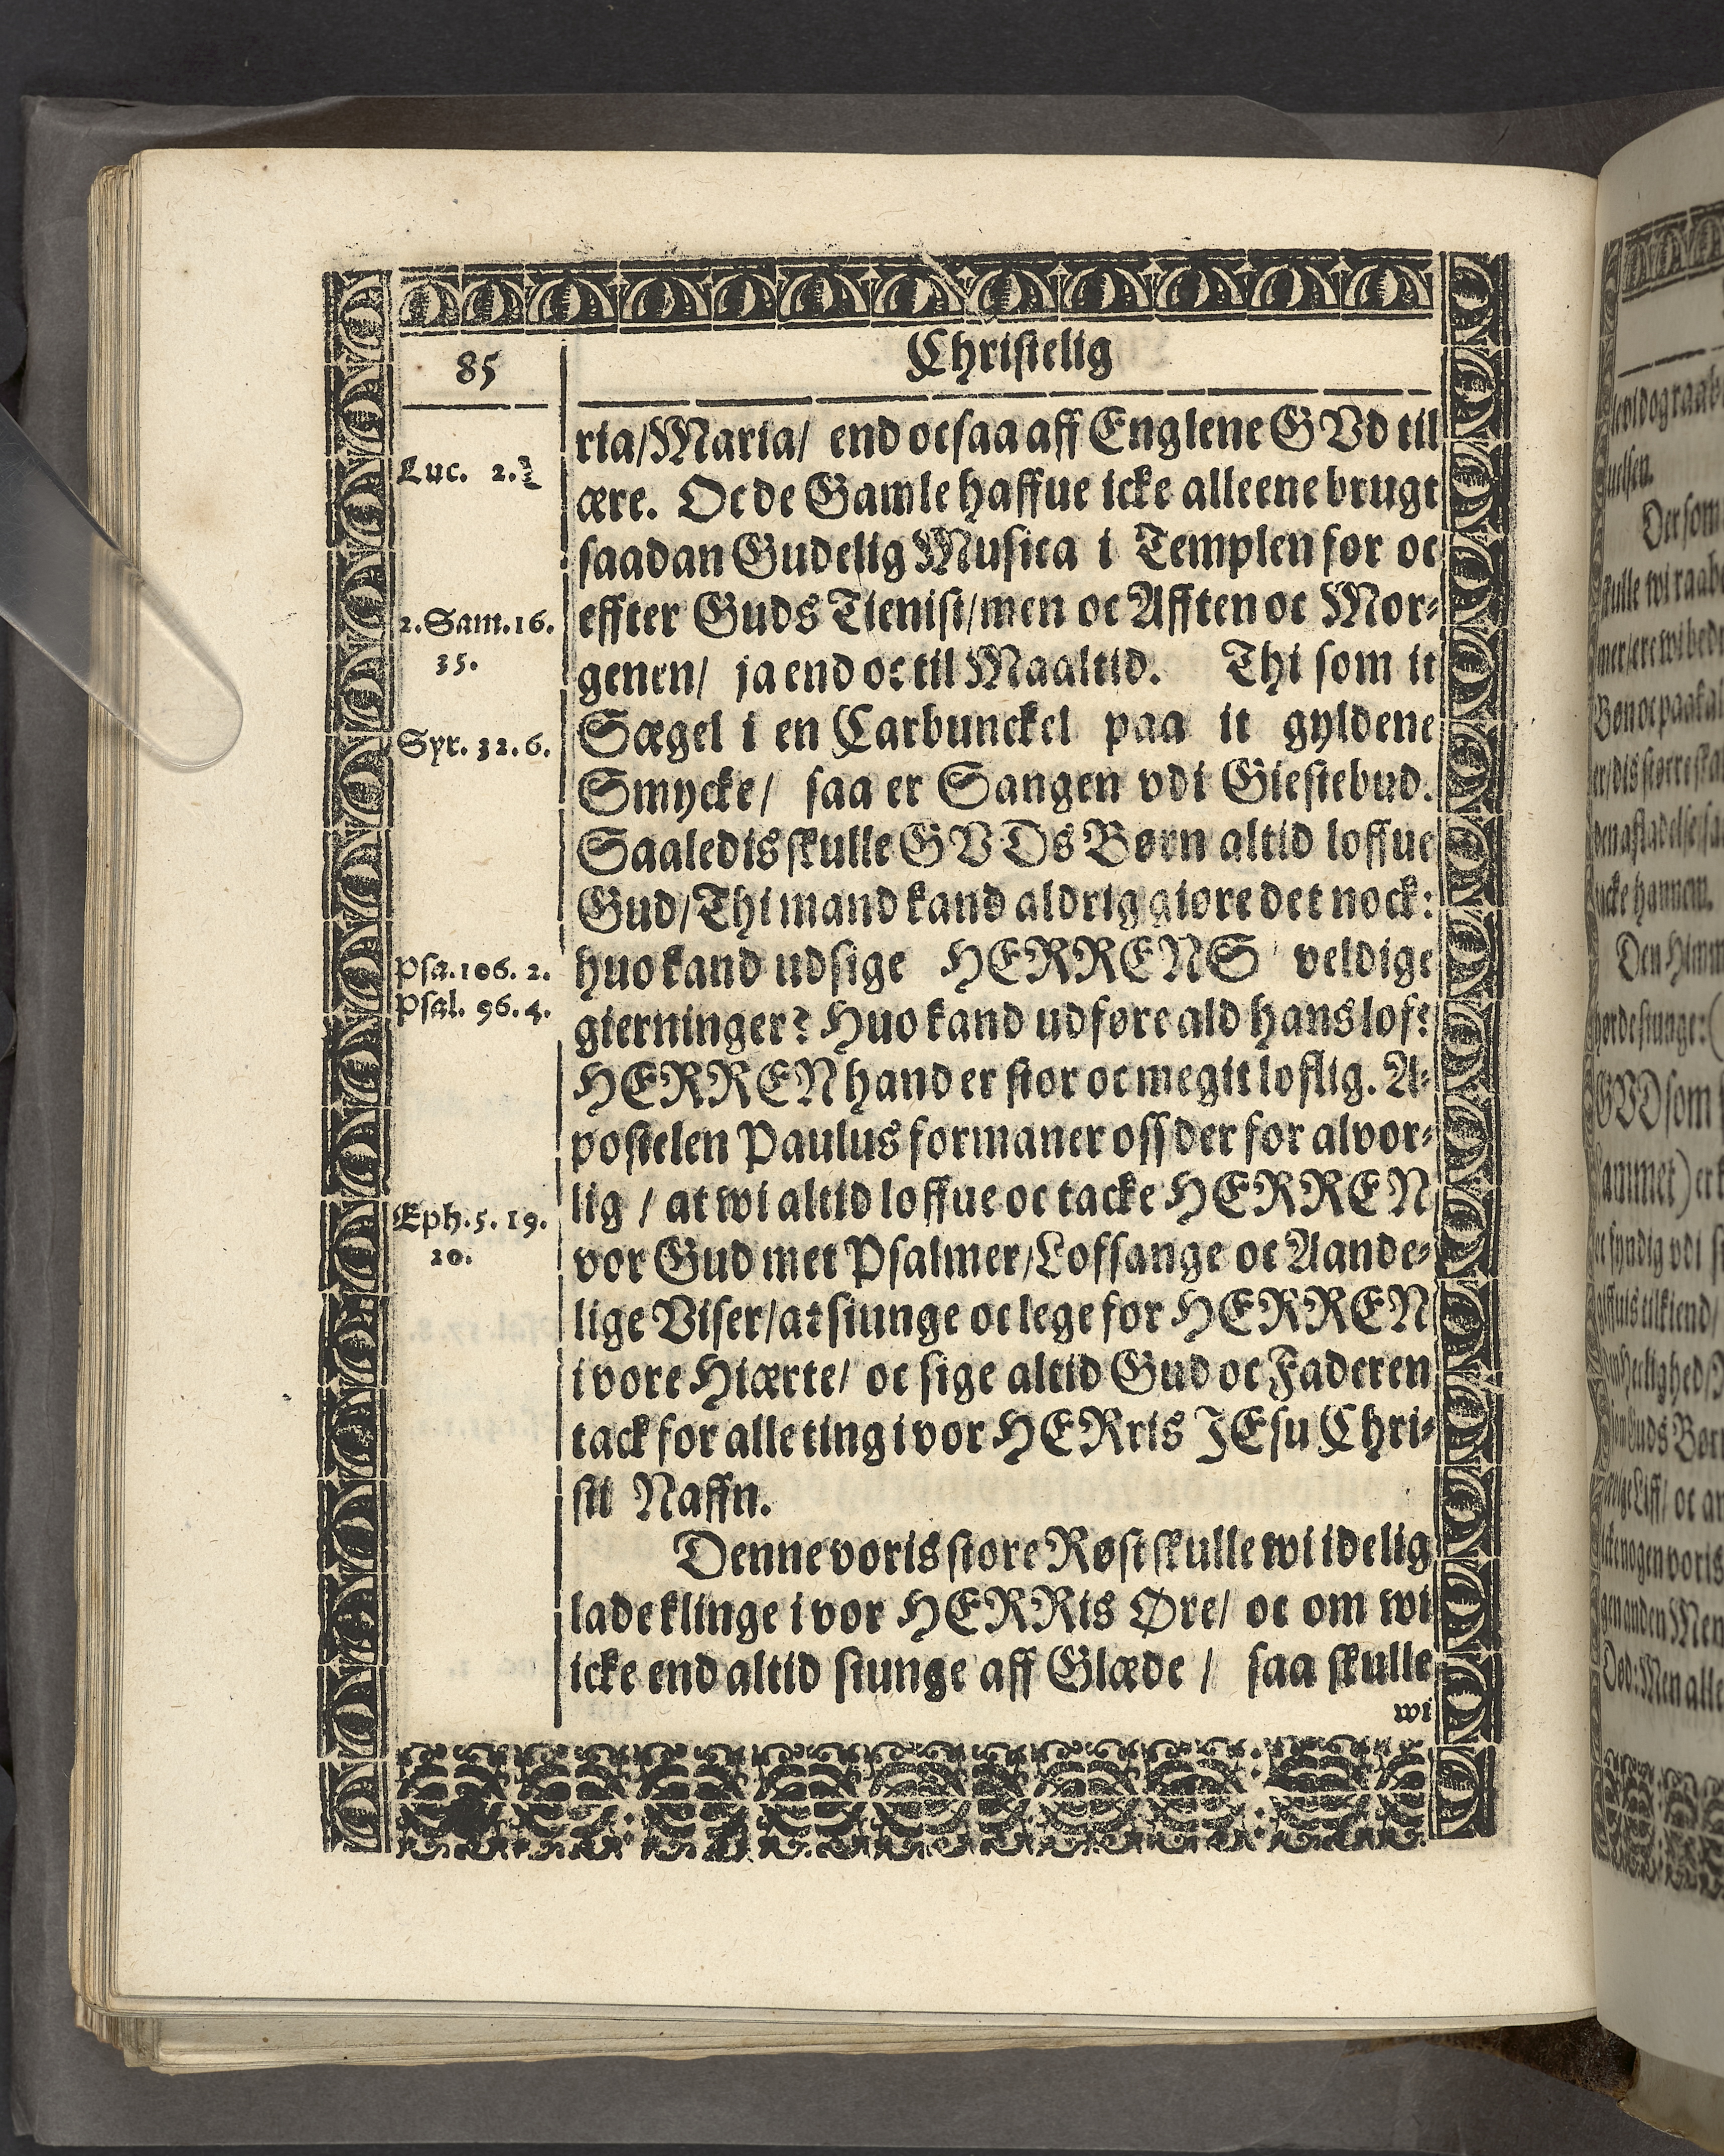 85
Christelig
ria/Maria/ end ocsaa aff Englene GVd til
Luc. 2.
ære. Oc de Gamle haffue icke alleene brugt
saadan Gudelig Musica i Templen for oc
2. Sam. 16.
35.
effter Guds Tienist/men oc Afften oc Mor⸗
genen/ ja end oc til Maaltid. Thi som it
Syr. 32. 6.
Sægel i en Carbunckel paa it gyldene
Smycke/ saa er Sangen vdi Giestebud.
Saaledis skulle GVDs Børn altid loffue
Gud/Thi mand kand aldrig giøre det nock:
Psa. 106. 2.
Psal. 96. 4.
huo kand udsige HERRENS veldige
gierninger? Huo kand udføre ald hans lof?
HERREN hand er stor oc megit loflig. A⸗
postelen Paulus formaner oss der for alvor⸗
Eph. 5. 19.
20.
lig / at wi altid loffue oc tacke HERREN
vor Gud met Psalmer/Lofsange oc Aande⸗
lige Viser/at siunge oc lege for HERREN
i vore Hiærte/ oc sige altid Gud oc Faderen
tack for alle ting i vor HERris JEsu Chri⸗
sti Naffn.
Denne voris store Røst skulle wi idelig
lade klinge i vor HERRis Øre/ oc om wi
icke end altid siunge aff Glæde / saa skulle
wi
Der som
skulle wi raabe
Den Himm
GVD som